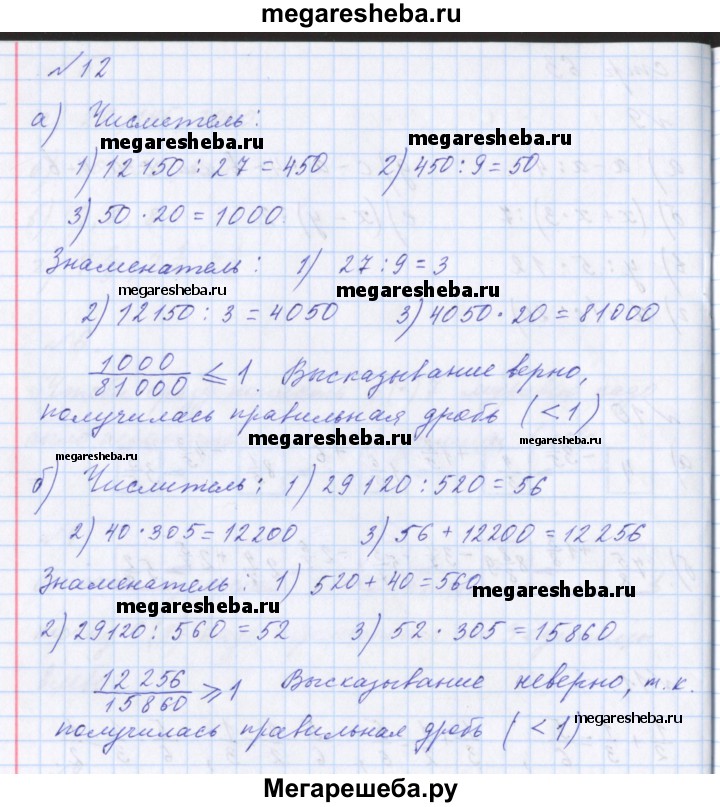 megaresheba.ru
№12
а) Числитель:
megaresheba.ru megaresheba.ru
1) 12150 : 27 = 450 2) 450 : 9 = 50
3) 50 · 20 = 1000
Знаменатель: 1) 27 : 9 = 3
megaresheba.ru megaresheba.ru
2) 12150 : 3 = 4050 3) 4050 · 20 = 81000
1000/81000 ⩽ 1. Высказывание верно,
получилась правильная дробь (<1)
megaresheba.ru
megaresheba.ru
б) Числитель: 1) 29120 : 520 = 56
2) 40 · 305 = 12200 3) 56 + 12200 = 12256
Знаменатель: 1) 520 + 40 = 560
megaresheba.ru megaresheba.ru
2) 29120 : 560 = 52 3) 52 · 305 = 15860
12256/15860 ⩾ 1 Высказывание неверно, т.к.
получилась правильная дробь (<1)
megaresheba.ru
Мегарешеба.ру